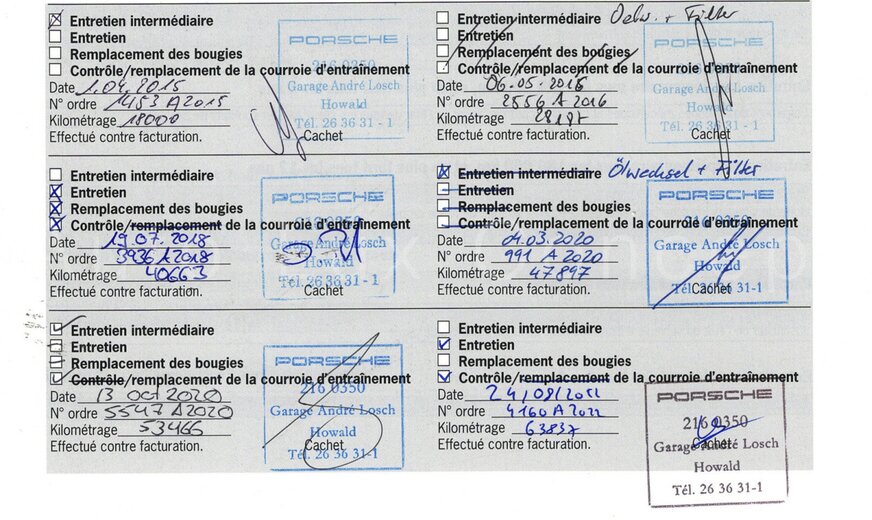 Entretien intermédiaire
Entretien
Remplacement des bougies
Contrôle/remplacement de la courroie d'entraînement
Date 1.04.2015
N° ordre 1453 A2015
Kilométrage 18000
Effectué contre facturation.
Cachet
PORSCHE
216 0350
Garage André Losch
Howald
Tél. 26 36 31 - 1
Entretien intermédiaire Oelw. + Filter
Entretien
Remplacement des bougies
Contrôle/remplacement de la courroie d'entraînement
Date 06.05.2016
N° ordre 2556 A 2016
Kilométrage 28187
Effectué contre facturation.
Cachet
PORSCHE
216 0350
Garage André Losch
Howald
Tél. 26 36 31 - 1
Entretien intermédiaire
Entretien
Remplacement des bougies
Contrôle/remplacement de la courroie d'entraînement
Date 19.07.2018
N° ordre 3936 A2018
Kilométrage 40663
Effectué contre facturation.
Cachet
PORSCHE
216 0350
Garage André Losch
Howald
Tél. 26 36 31 - 1
Entretien intermédiaire Ölwechsel + Filter
Entretien
Remplacement des bougies
Contrôle/remplacement de la courroie d'entraînement
Date 04.03.2020
N° ordre 991 A 2020
Kilométrage 47897
Effectué contre facturation.
Cachet
PORSCHE
216 0350
Garage André Losch
Howald
Tél. 26 36 31-1
Entretien intermédiaire
Entretien
Remplacement des bougies
Contrôle/remplacement de la courroie d'entraînement
Date 13 Oct 2020
N° ordre 5547 A2020
Kilométrage 53466
Effectué contre facturation.
Cachet
PORSCHE
216 0350
Garage André Losch
Howald
Tél. 26 36 31-1
Entretien intermédiaire
Entretien
Remplacement des bougies
Contrôle/remplacement de la courroie d'entraînement
Date 24/08/2022
N° ordre 4160 A2022
Kilométrage 63837
Effectué contre facturation.
Cachet
PORSCHE
216 0350
Garage André Losch
Howald
Tél. 26 36 31-1